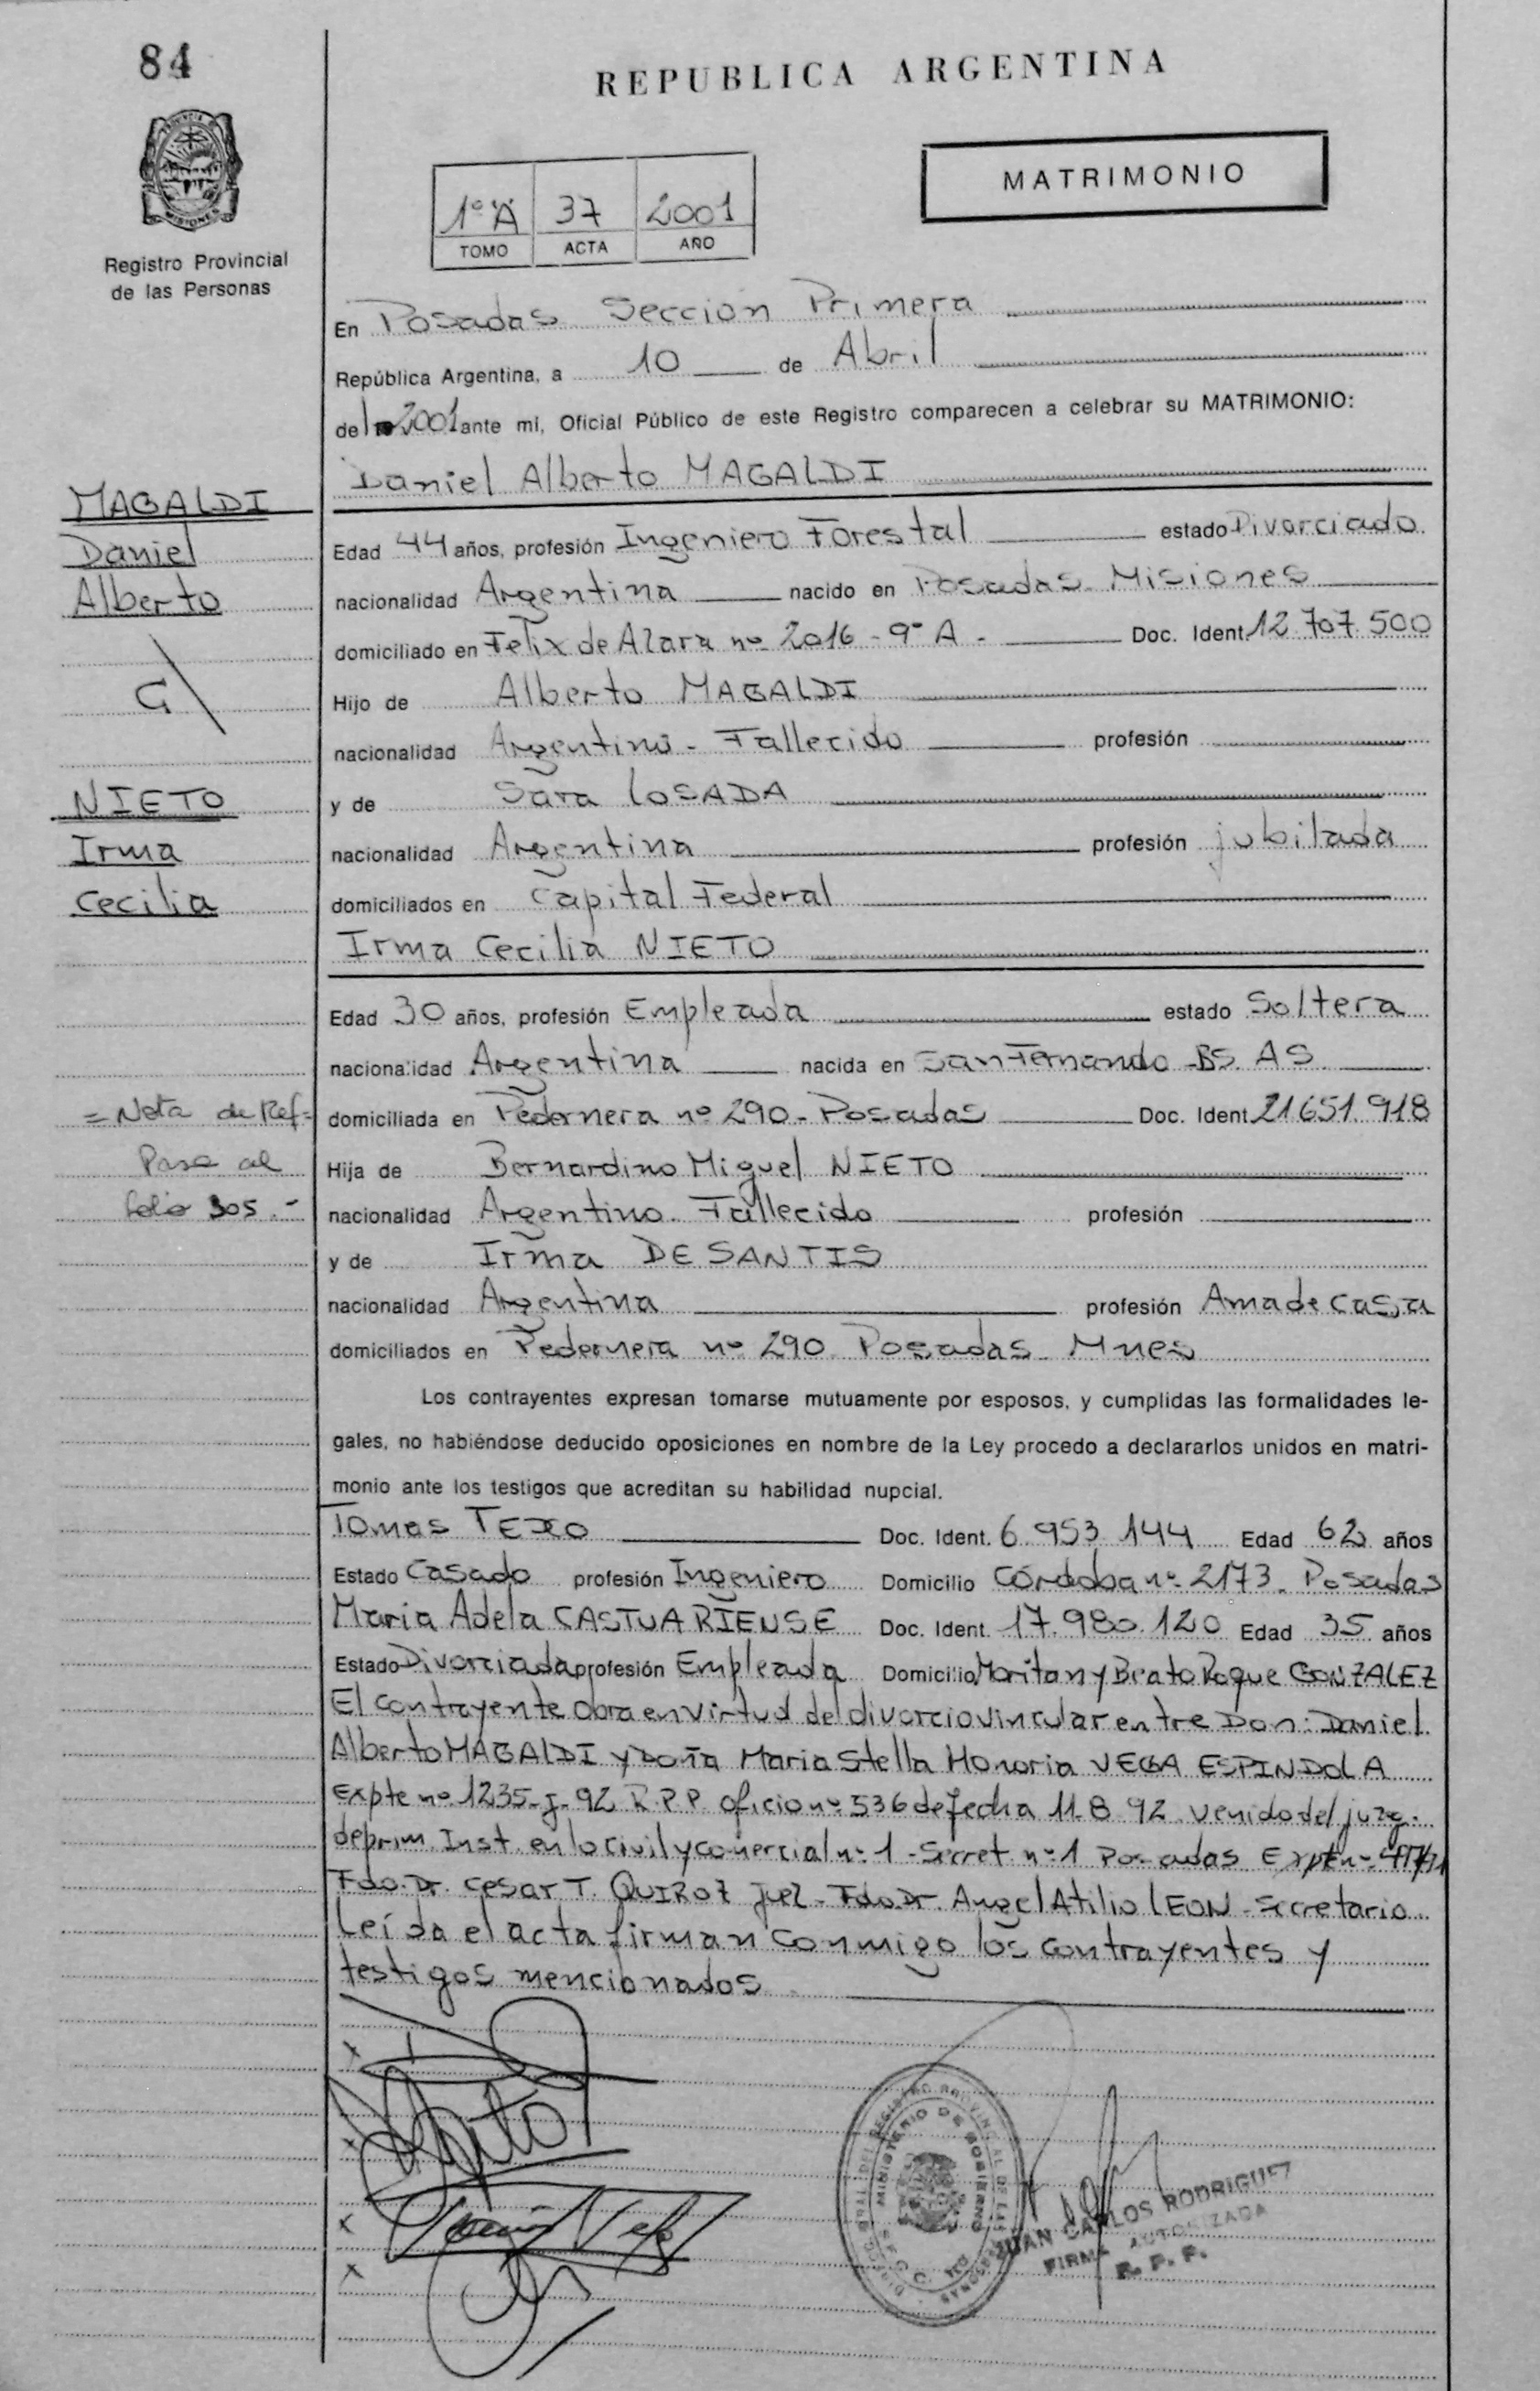 84
REPUBLICA ARGENTINA
MATRIMONIO
1º "A" 37 2001
TOMO ACTA AÑO
Registro Provincial
de las Personas
En Posadas Sección Primera
República Argentina, a 10 de Abril
del 2001 ante mi, Oficial Público de este Registro comparecen a celebrar su MATRIMONIO:
Daniel Alberto MAGALDI
MAGALDI
Daniel
Alberto
Edad 44 años, profesión Ingeniero Forestal estado Divorciado
nacionalidad Argentina nacido en Posadas Misiones
domiciliado en Felix de Azara nº 2016 - 9º A - Doc. Ident 12.707.500
Hijo de Alberto MAGALDI
nacionalidad Argentino - Fallecido profesión
NIETO
Irma
Cecilia
y de Sara LOSADA
nacionalidad Argentina profesión jubilada
domiciliados en Capital Federal
Irma Cecilia NIETO
Edad 30 años, profesión Empleada estado Soltera
nacionalidad Argentina nacida en San Fernando - BS. AS.
= Nota de Ref=
Pasa al
folio 305.-
domiciliada en Pedernera nº 290 - Posadas Doc. Ident 21.651.918
Hija de Bernardino Miguel NIETO
nacionalidad Argentino - Fallecido profesión
y de Irma DE SANTIS
nacionalidad Argentina profesión Ama de casa
domiciliados en Pedernera nº 290 Posadas - Mnes
Los contrayentes expresan tomarse mutuamente por esposos, y cumplidas las formalidades le-
gales, no habiéndose deducido oposiciones en nombre de la Ley procedo a declararlos unidos en matri-
monio ante los testigos que acreditan su habilidad nupcial.
Tomas Doc. Ident. 6.953.144 Edad 62 años
Estado Casado profesión Ingeniero Domicilio Córdoba nº 2173 - Posadas
Maria Adela Doc. Ident. 17.980.120 Edad 35 años
Estado Divorciada profesión Empleada Domicilio Moritan y Beato Roque GONZALEZ
El contrayente obra en virtud del divorcio vincular entre Don: Daniel
Alberto MAGALDI y Doña Maria Stella Honoria VEGA ESPINDOLA
Expte nº 1235-J-92 R.P.P. oficio nº 536 de fecha 11.8.92 venido del juzg.
de prim. Inst. en lo civil y comercial nº 1 - Secret. nº 1 Posadas Expte nº
Fdo. Dr. Cesar T. QUIROZ Juez - Fdo. Dr. Angel Atilio LEON - Secretario
Leída el acta firman conmigo los contrayentes y
testigos mencionados
MINISTERIO DE GOBIERNO
JUAN CARLOS RODRIGUEZ
FIRMA AUTORIZADA
R. P. P.